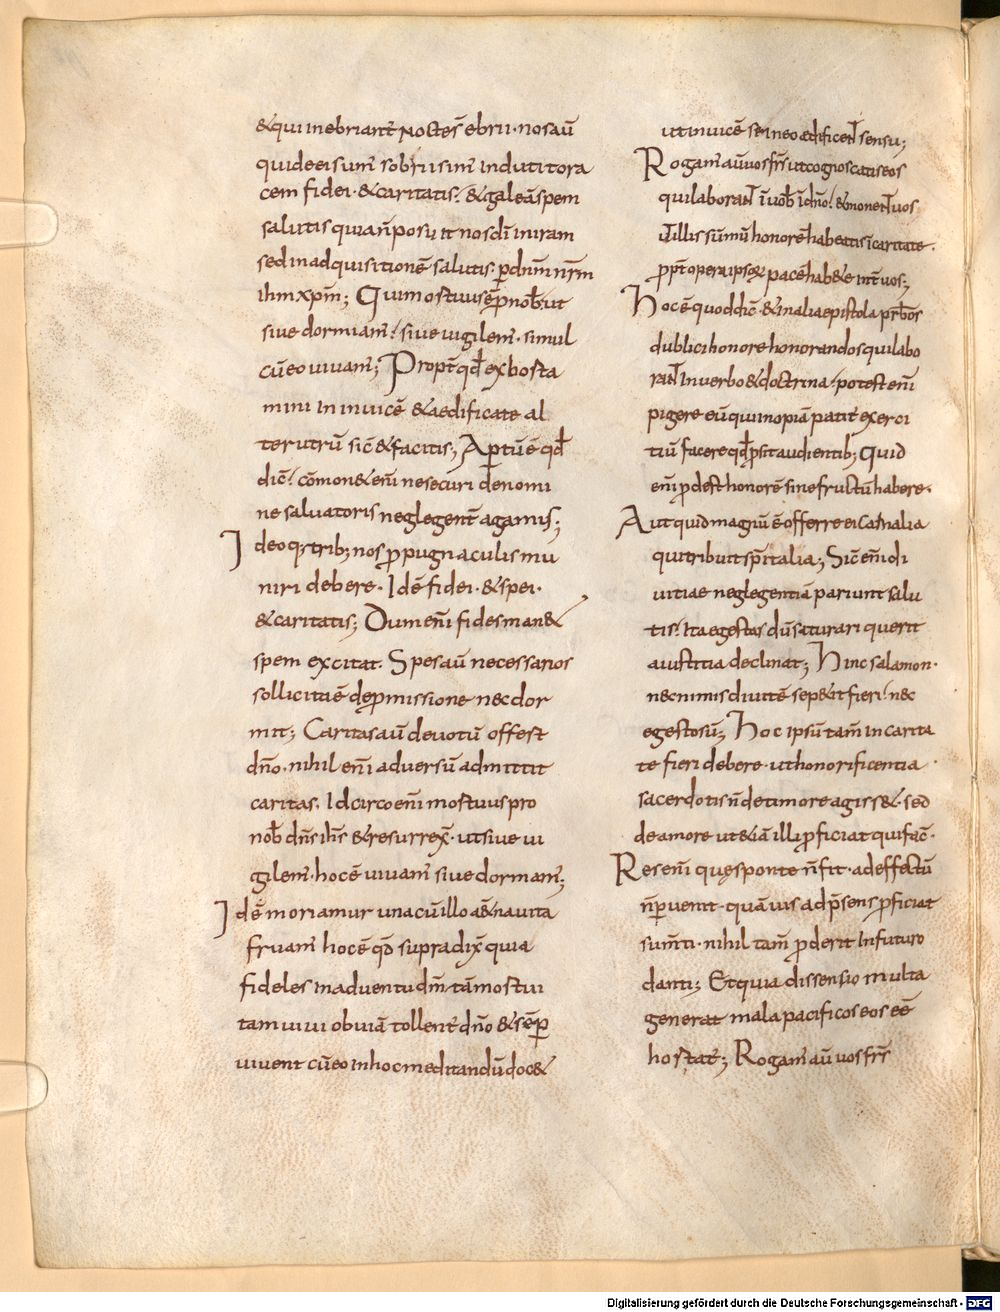 &qui inebriant̄ noctes̄ ebrii · nos aū
quidei sum̄ sobrii sim̄ induti tora
cem fidei · & caritatis · & galeā spem
salutis quia n̄ posuit nos d̄i in iram
sed in adquisitionē salutis · ꝑ dn̄m nr̄m
ihm xp̄m ; Qui mortuus ē pro nob̄ · ut
sive dormiam̄ · sive vigilem̄ · simul
cū eo vivam̄ ; Propt̄ qd̄ ex hosta
mini in invicē & aedificate al
terutrū sic̄ & facitis ; Aꝑtū ē qd̄
dic̄ · cōmon& en̄i ne securi de nomi
ne salvatoris neglegent̄ agamus ;
Ideoq; trib; nos ꝓpugnaculis mu
niri debere · Id ē fidei · & spei ·
& caritatis ; Dum en̄i fides man&
spem excitat · Spes aū necessarios
sollicitiē de ꝓmissione nec dor
mit ; Caritas aū devotū offest
dn̄o · nihil en̄i adversū admittit
caritas · Idcirco en̄i mortuus pro
nob̄ dn̄s ih̄s & resurrex̄ · ut sive vi
gilem̄ · hoc ē vivam̄ sive dormiam̄ ;
Id ē moriamur una cū illo aet̄na vita
fruam̄ hoc ē qd̄ supra dix̄ quia
fideles in adventu dn̄i tā mortui
tam vivi obviā tollent̄ dn̄o & sēꝑ
vivent cū eo in hoc meditandū doc&
ut invicē se in eo aedificent̄ sensu ;
Rogam̄ aū vos fr̄s ut cognoscatis eos
qui laborant̄ in vob̄ in dn̄o · & monent̄ vos
ut illis summū honorē habeatis in caritate ·
ꝓpt̄ opera ipsoꝝ pacē hab&e int̄ vos ;
Hoc ē quod dic̄ · & in alia epistola pr̄bos
dublici honore honorandos qui labo
rant̄ In verbo & doctrina · potest en̄i
pigere eū qui inopiā patit̄ exerci
tiū facere qd̄ ꝓsit audientib; Quid
en̄i ꝓdest honorē sine fructū habere ·
Aut quid magnū ē offerre ei carnalia
qui tribuit sp̄italia ; Sic̄ en̄i di
vitiae neglegentiā pariunt salu
tis · Ita egestas dū saturari querit
a iustitia declinat ; Hinc salamon ·
nec nimis divitē se pet̄it fieri · nec
egestosū ; Hoc ipsū tam̄ in carita
te fieri debere · ut honorificentia
sacerdotis n̄ de timore agiss& · sed
de amore ut &iā illi ꝓficiat qui fac̄ ·
Res en̄i quę sponte n̄ fit · ad effectū
n̄ ꝑvenit · quāvis ad p̄sens ꝓficiat
sum̄ti · nihil tam̄ ꝓderit In futuro
danti ; Et quia dissensio multa
generat mala pacificos eos eē
hortat̄ ; Rogam̄ aū vos fr̄s
Digitalisierung gefördert durch die Deutsche Forschungsgemeinschaft - DFG